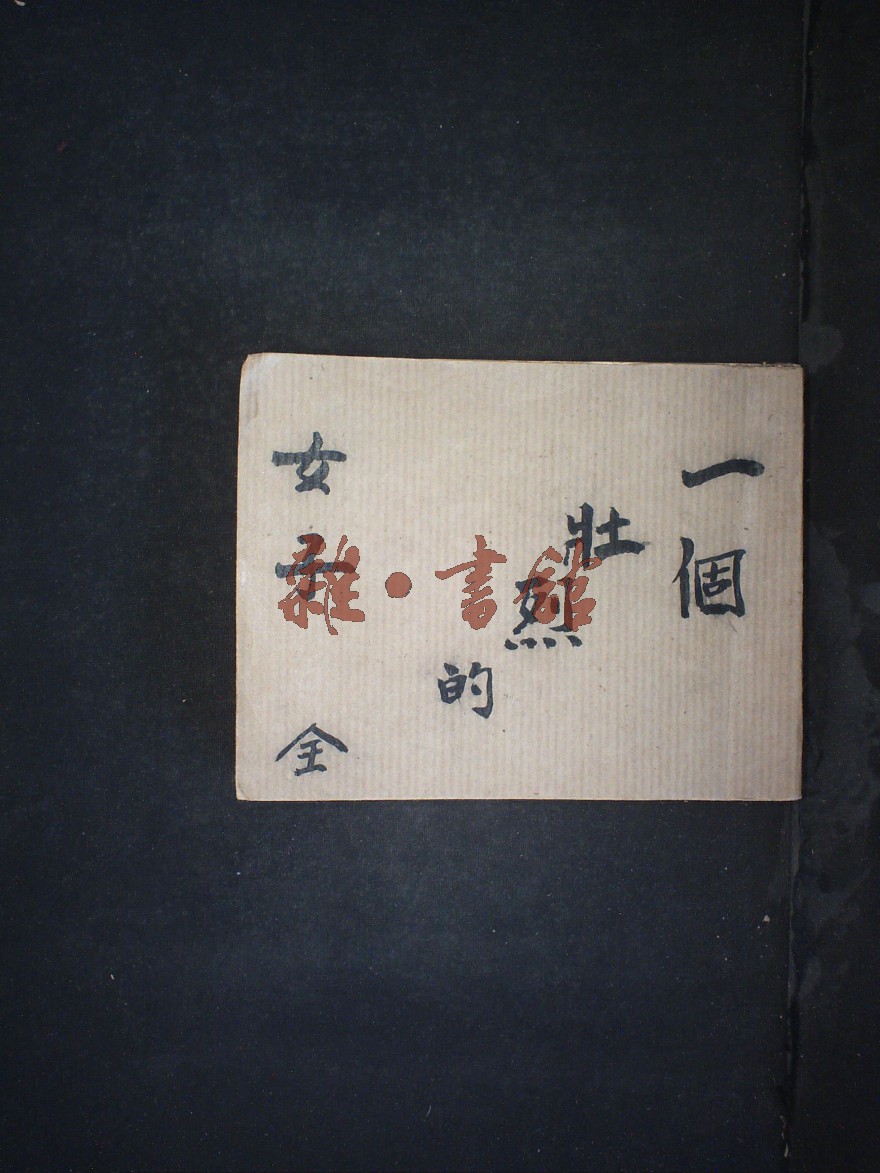 一個
壯烈
的
女子
全
雜·書館